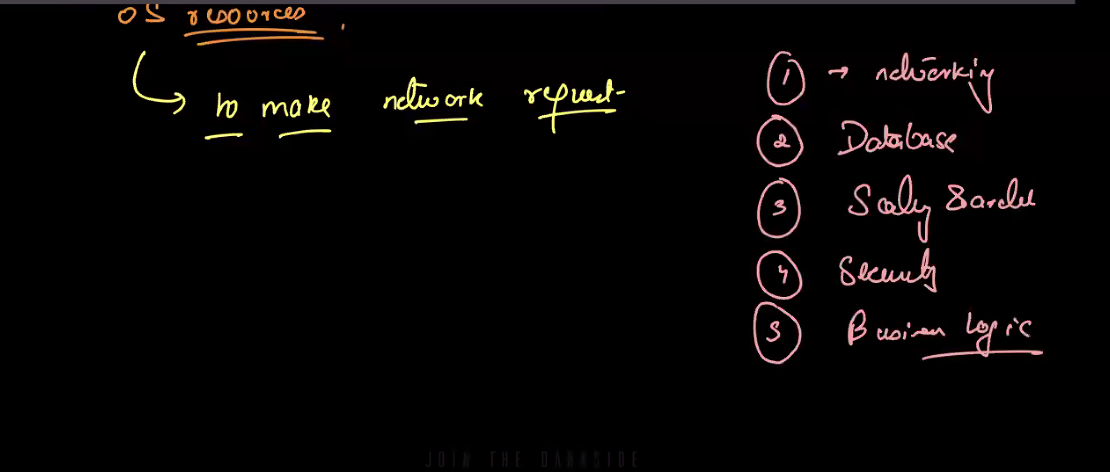 OS resources.
to make network request
1 → networking
2 Database
3
4 Security
5 Business Logic
JOIN THE DARKSIDE